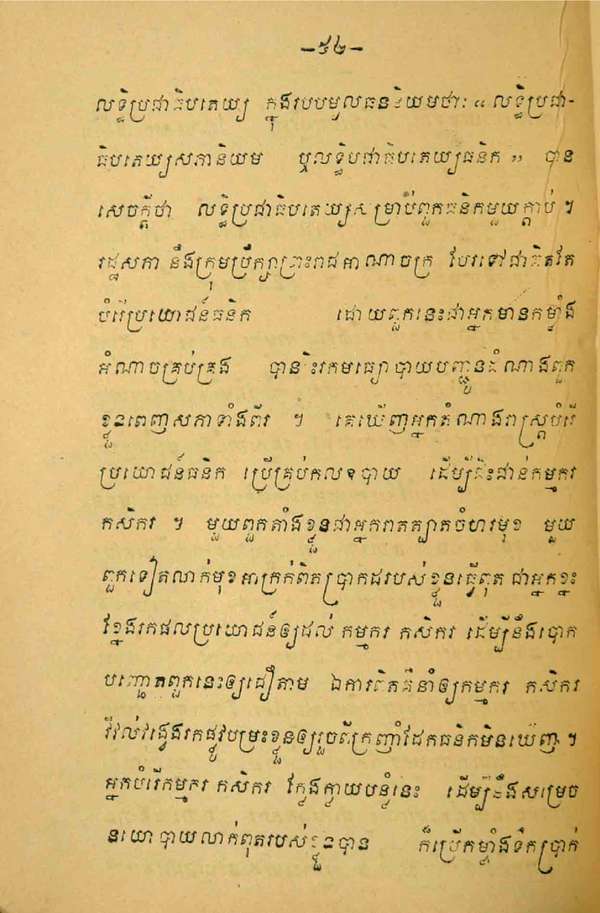 –៥៤–
លទ្ធិប្រជាធិបតេយ្យ ក្នុងរបបមូលធននិយមថា: «លទ្ធិប្រជា-
ធិបតេយ្យសភានិយម ឬលទ្ធិបជាធិបតេយ្យធនិក» បាន
សេចក្តីថា លទ្ធិប្រជាធិបតេយ្យសម្រាប់ពួកធនិកមួយក្តាប់ ។
រដ្ឋសភា នឹងក្រុមប្រឹក្សាព្រះរាជអាណាចក្រ បែរទៅជាគិតតែ
បំរើប្រយោជន៍ធនិក ដោយពួកនេះជាអ្នកមានកម្លាំង
អំណាចគ្រប់គ្រង បានរិះរកមធ្យោបាយបញ្ជូនដំណាងពួក
ខ្លួនពេញសភាទាំងពីរ ។ គេឃើញអ្នកតំណាងរាស្ត្របំរើ
ប្រយោជន៍ធនិក ប្រើគ្រប់កលឧបាយ ដើម្បីជិះជាន់កម្មករ
កសិករ ។ មួយពួកតាំងខ្លួនជាអ្នករាតត្បាតចំហរមុខ មួយ
ពួកទៀតលាក់មុខអាក្រក់ពិតប្រាកដរបស់ខ្លួនធ្វើពុត ជាអ្នកខ្នះ
ខ្នែងរកផលប្រយោជន៍ឲ្យដល់ កម្មករ កសិករ ដើម្បីនឹងបោក
បញ្ឆោតពួកនេះឲ្យជឿតាម ឯការពិតគឺនាំឲ្យកម្មករ កសិករ
វិលវល់វង្វេងរកផ្លូវបម្រះខ្លួនឲ្យរួចពីក្រញាំដែកធនិកមិនឃើញ ។
អ្នកបំរើកម្មករ កសិករ ក្លែងក្លាយបន្លំនេះ ដើម្បីនឹងសម្រេច
នយោបាយលាក់ពុតរបស់ខ្លួនបាន ក៏ប្រើកម្លាំងទឹកប្រាក់